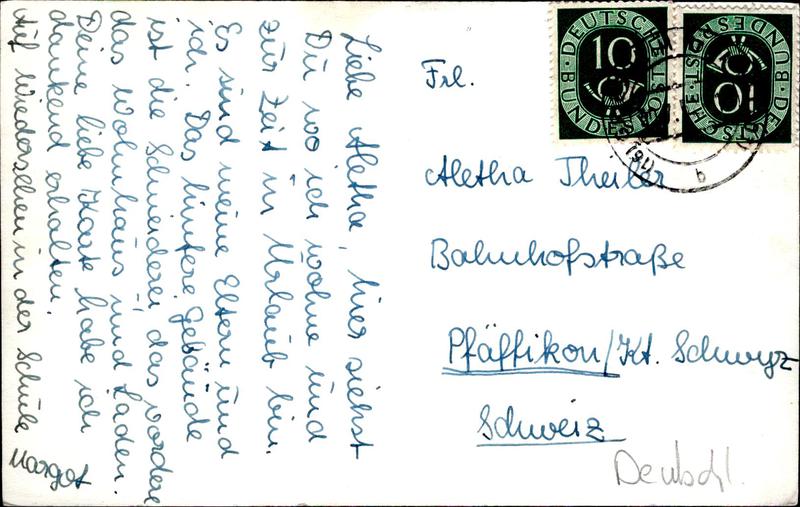 Liebe Aletha, hier siehst
Du wo ich wohne und
zur Zeit in Urlaub bin.
Es sind meine Eltern und
ich. Das hintere Gebäude
ist die Schneiderei, das vordere
das Wohnhaus und Laden.
Deine liebe Karte habe ich
dankend erhalten.
Auf Wiedersehen in der Schule
Margot
Frl.
Aletha Theiler
Bahnhofstraße
Pfäffikon/Kt. Schwyz
Schweiz
Deutschl.
DEUTSCHE BUNDESPOST
10
DEUTSCHE BUNDESPOST
10
b